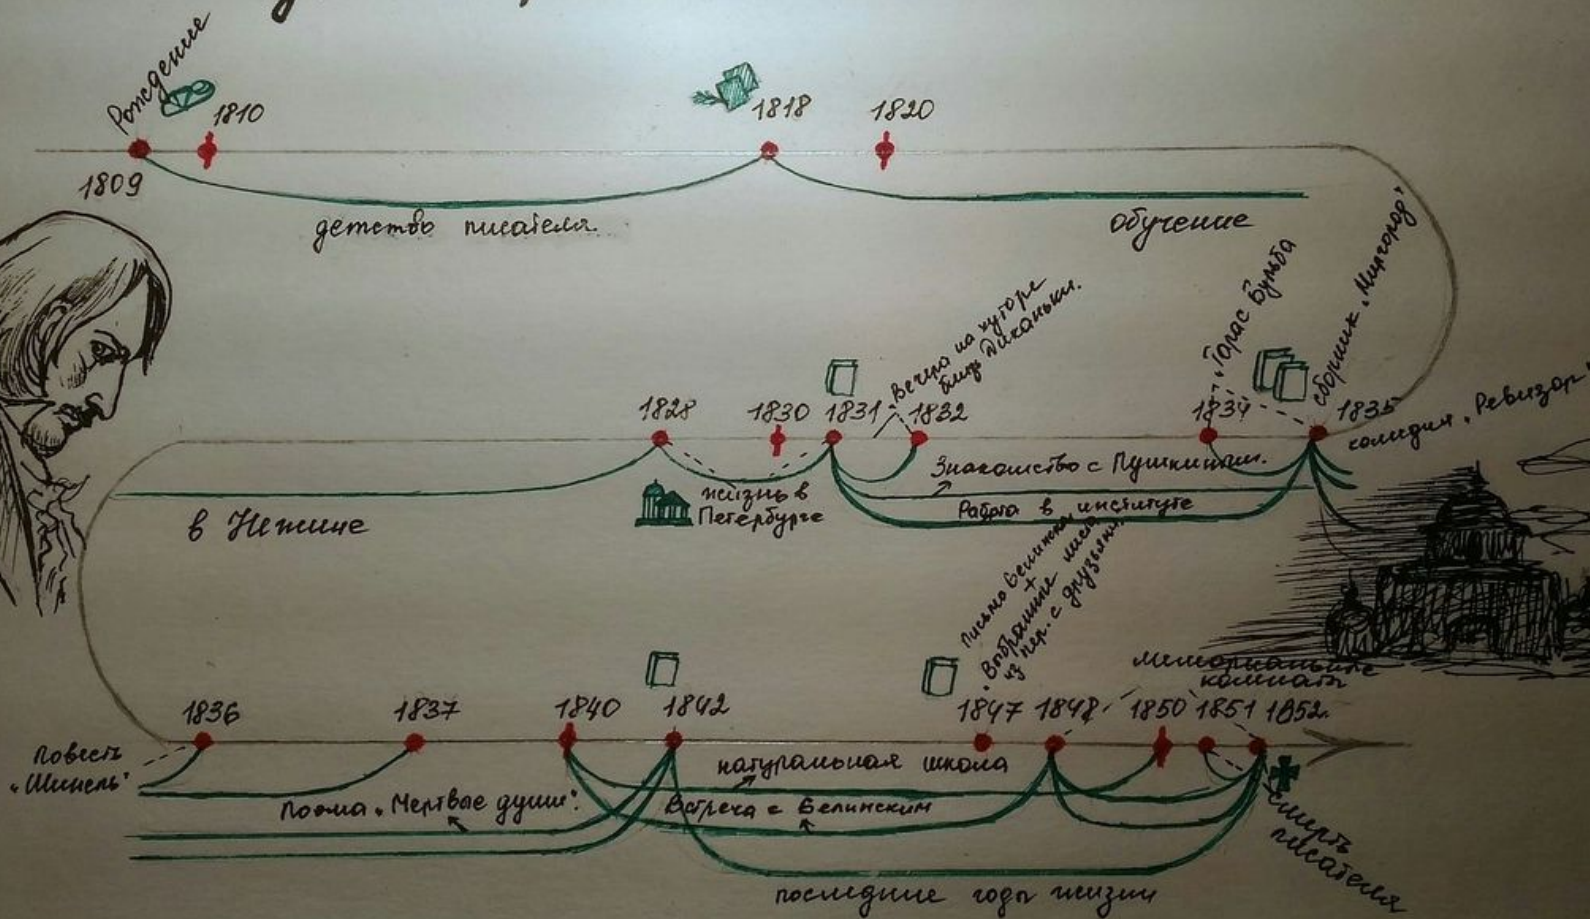 Рождение
1810
1818
1820
1809
детство писателя.
обучение
"Вечера на хуторе
близ Диканьки.
"Тарас Бульба
сборник "Миргород"
1828
1830
1831
1832
1834
1835
комидия "Ревизор"
Знакомство с Пушкиным.
жизнь в
Петербурге
Работа в институте
в Нежине
Письмо Белинского
+
"Выбранные места
из пер. с друзьями
Мемориальные
комнаты
1836
1837
1840
1842
1847
1848
1850
1851
1852.
повесть
"Шинель"
натуральная школа
Поэма "Мертвые души".
Встреча с Белинским
смерть
писателя
последние годы жизни